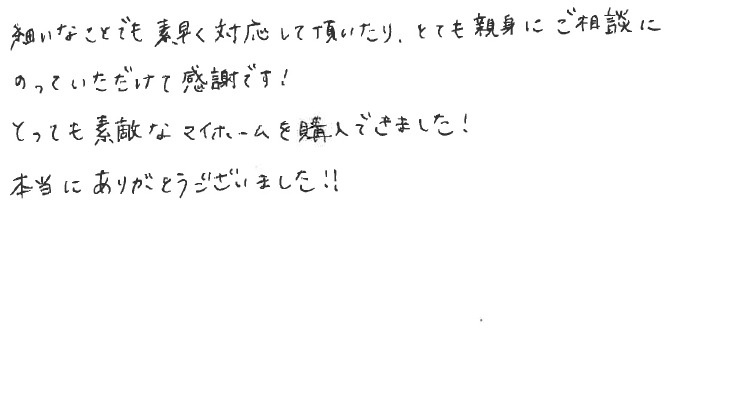 細いなことでも素早く対応して頂いたり、とても親身にご相談に
のっていただけて感謝です!
とっても素敵なマイホームを購入できました!
本当にありがとうございました!!